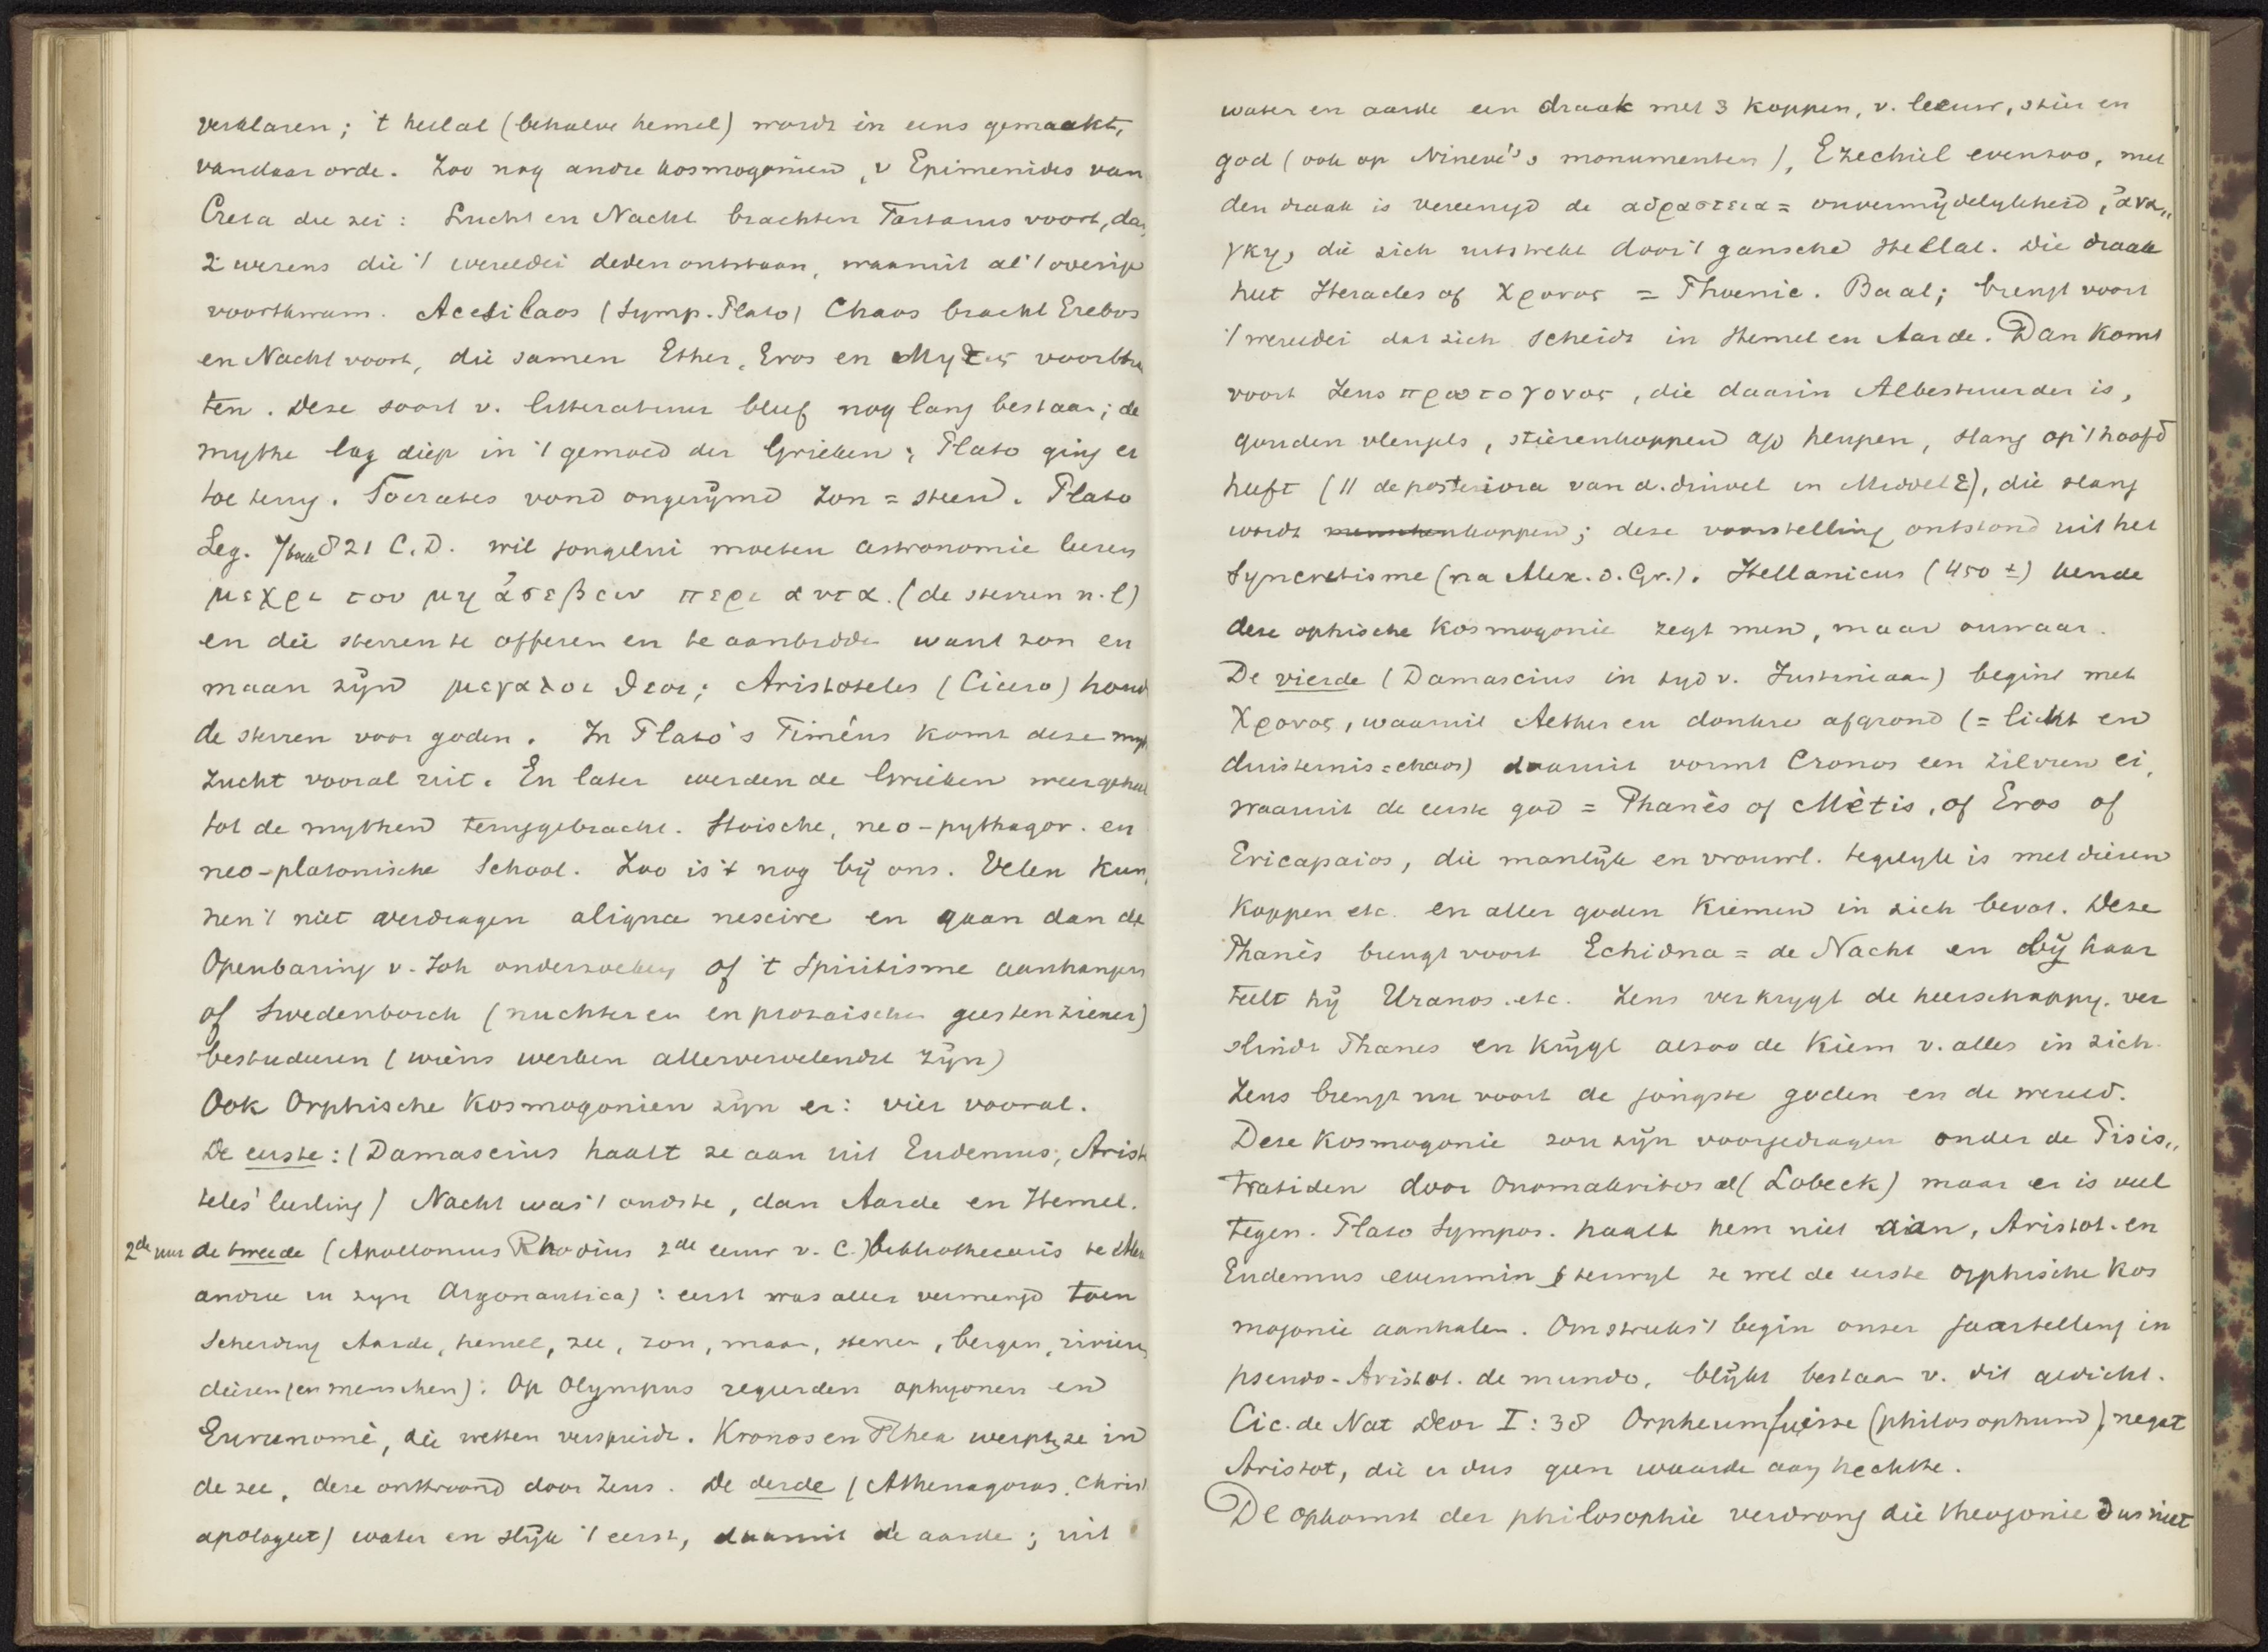 verklaren; 't heelal (behalve hemel) wordt in eens gemaakt,
vandaar orde. Zoo nog andre kosmogonieen, v Epimenides van
Creta die zei: Lucht en Nacht brachten Tartarus voort, dan
2 wezens die 't wereldei deden ontstaan, waaruit al 't overige
voortkwam. Acesilaos (Symp. Plato) Chaos bracht Erebos
en Nacht voort, die samen Ether, Eros en Μητις voortbra
ten. Deze soort v. litteratuur bleef nog lang bestaan; de
mythe lag diep in 't gemoed der Grieken; Plato ging er
toe terug. Socrates vond ongerijmd zon = steen. Plato
Leg. 7 boek 821 C.D. wil jongelui moeten astronomie leeren
μεχρι του μη ἀσεβειν περι αυτα. (de sterren n.l)
en die sterren te offeren en te aanbidden want zon en
maan zijn μεγαλοι θεοι; Aristoteles (Cicero) houd
de sterren voor goden. In Plato's Timéus komt deze myth
zucht vooral uit. En later werden de Grieken weer geheel
tot de mythen teruggebracht. Stoische, neo-pythagor. en
neo-platonische School. Zoo is 't nog bij ons. Velen kun,
nen 't niet verdragen aliqua nescire en gaan dan de
Openbaring v. Joh onderzoeken of 't Spiritisme aanhangen
of Swedenborch (nuchteren en prozaischen geestenziener)
bestudeeren (wiens werken allervervelendst zijn)
Ook Orphische Kosmogonien zijn er: vier vooral.
De eerste: (Damascius haalt ze aan uit Eudemus, Aristo
teles' leerling) Nacht was 't oudste, dan Aarde en Hemel.
2de uur de tweede (Apollonius Rhodius 2de eeuw v. C.) bibliothecaris te Alex
andrie in zijn Argonautica): eerst was alles vermengd toen
Scheiding Aarde, hemel, zee, zon, maan, sterren, bergen, rivieren
dieren (en menschen): Op Olympus regeerden ophyonen en
Eurunomè, die wetten verspreidt. Kronos en Rhea werpt ze in
de zee, deze onttroond door Zeus. De derde (Athenagoras, Christ
apologeet) water en slijk 't eerst, daaruit de aarde; uit
water en aarde een draak met 3 koppen, v. leeuw, stier en
god (ook op Ninevé's monumenten), Ezechiel evenzoo, met
den draak is vereenigd de αδραστεια = onvermijdelijkheid, ἀνα,,
γκη, die zich uitstrekt door 't gansche Heelal. Die draak
heet Heracles of Χρονος = Phoenic. Baal; brengt voort
't wereldei dat zich scheidt in Hemel en Aarde. Dan komt
voort Zeus πρωτογονος, die daarin Albestuurder is,
gouden vleugels, stierenkoppen a/d heupen, slang op 't hoofd
heeft (11 de posteriora van d. duivel in Middel E), die slang
wordt menschenkoppen; deze voorstelling ontstond uit het
Syncretisme (na Alex. d. Gr.). Hellanicus (450 ±) kende
deze ophische Kosmogonie zegt men, maar onwaar.
De vierde (Damascius in tijd v. Justiniaan) begint met
Χρονος, waaruit Aether en donkre afgrond (= licht en
duisternis = chaos) daaruit vormt Cronos een zilvren ei,
waaruit de eerste god = Phanès of Mètis, of Eros of
Ericapaios, die manlijk en vrouwl. tegelijk is met dieren
koppen etc. en aller goden Kiemen in zich bevat. Deze
Phanès brengt voort Echidna = de Nacht en bij haar
teelt hij Uranos. etc. Zeus verkrijgt de heerschappij. ver
slindt Phanes en krijgt alzoo de Kiem v. alles in zich.
Zeus brengt nu voort de jongste goden en de wereld.
Deze Kosmogonie zou zijn voorgedragen onder de Pisis,,
tratiden door Onomakritos al (Lobeck) maar er is veel
tegen. Plato Sympos. haalt hem niet aan, Aristot. en
Eudemus evenmin, terwijl ze wel de eerste orphische Kos
mogonie aanhalen. Omstreeks 't begin onzer jaartelling in
pseudo-Aristot. de mundo, blijkt bestaan v. dit gedicht.
Cic. de Nat Deor I: 38 Orpheum fuisse (philosophum), negat
Aristot, die er dus geen waarde aan hechtte.
De opkomst der philosophie verdrong die theogonie dus niet